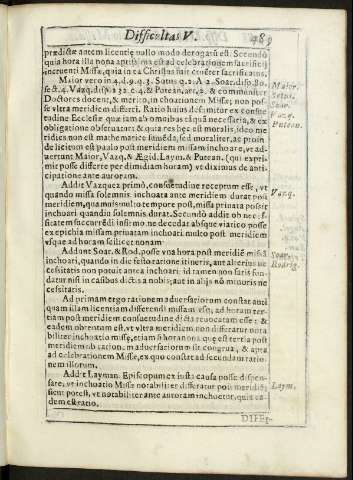 Difficultas V. 989
prædictæ antem licentię nullo modo derogatũ est. Secundò
quia hora illa nona aptissima est ad celebrationem sacrificij
incruenti Missæ, quia in ea Christus fuit cruētè sacrificatus.
Maior vero in 4. d. 9. q. 3. Sotus q. 2. A 2. Soar. disp. 80.
sect. 4. Vazq. disp. 232. c. 4. & Putean. art. 2. & communiter
Doctores docent, & merito, inchoationem Missæ; non pos-
se vltra meridiem differri. Ratio huius desumitur ex consue
tudine Ecclesiæ quæ iam ab omnibus aliquâ necessaria, & ex
obligatione obseruatur: & quia res hęc est moralis, ideo me
ridies non est mathematicè sumēda, sed moraliter, ac proin
de licitum est paulo post meridiem missam inchoare, vt ad-
uertunt Maior, Vazq. & Ægid. Laym. & Putean. (qui expri-
mit posse differre per dimidiam horam) vt diximus de anti-
cipatione ante auroram.
Addit Vazquez primò, consuetudine receptum esse, vt
quando missa solemnis inchoata ante meridiem durat post
meridiem, quamuis multo tempore post, missa priuata possit
inchoari quandiu solemnis durat. Secundò addit ob necessi-
tatem succurrēdi infirmo, ne decedat absque viatico posse
ex epichia missam priuatam inchoari multo post meridiem
vsque ad horam scilicet nonam
Addunt Soar. & Rod. posse vna hora post meridiē missā
inchoari, quando in die festo ratione itineris, aut alterius ne
cessitatis non potuit antea inchoari: id tamen non satis fun-
datur nisi in casibus dictis a nobis; aut in alijs nō minoris ne
cessitatis.
Ad primam ergo rationem aduersariorum constat nun
quam illam licentiam differendi missam vsq; ad horam ter-
tiam post meridiem consuetudine dicta reuocatam esse: &
eadem obrentum est, vt vltra meridiem non differatur nota
biliter inchoatio missæ, etiam si hora nona quę est tertia post
meridiem ob ration. m aduersariorum sit congrua, & apta
ad celebrationem Missæ, ex quo constat ad secundam ratio-
nem illorum.
Addit Layman. Episcopum ex iusta causa posse dispen-
sare, vt inchoatio Missæ notabiliter differatur post meridiē;
sicut potest, vt notabiliter ante auroram inchoetur, quia ea-
dem est ratio.
Maior.
Sotus.
Soar.
Vazq.
Putean.
Vazq.
Soar.
Rodrig.
Laym.
DIFFI-